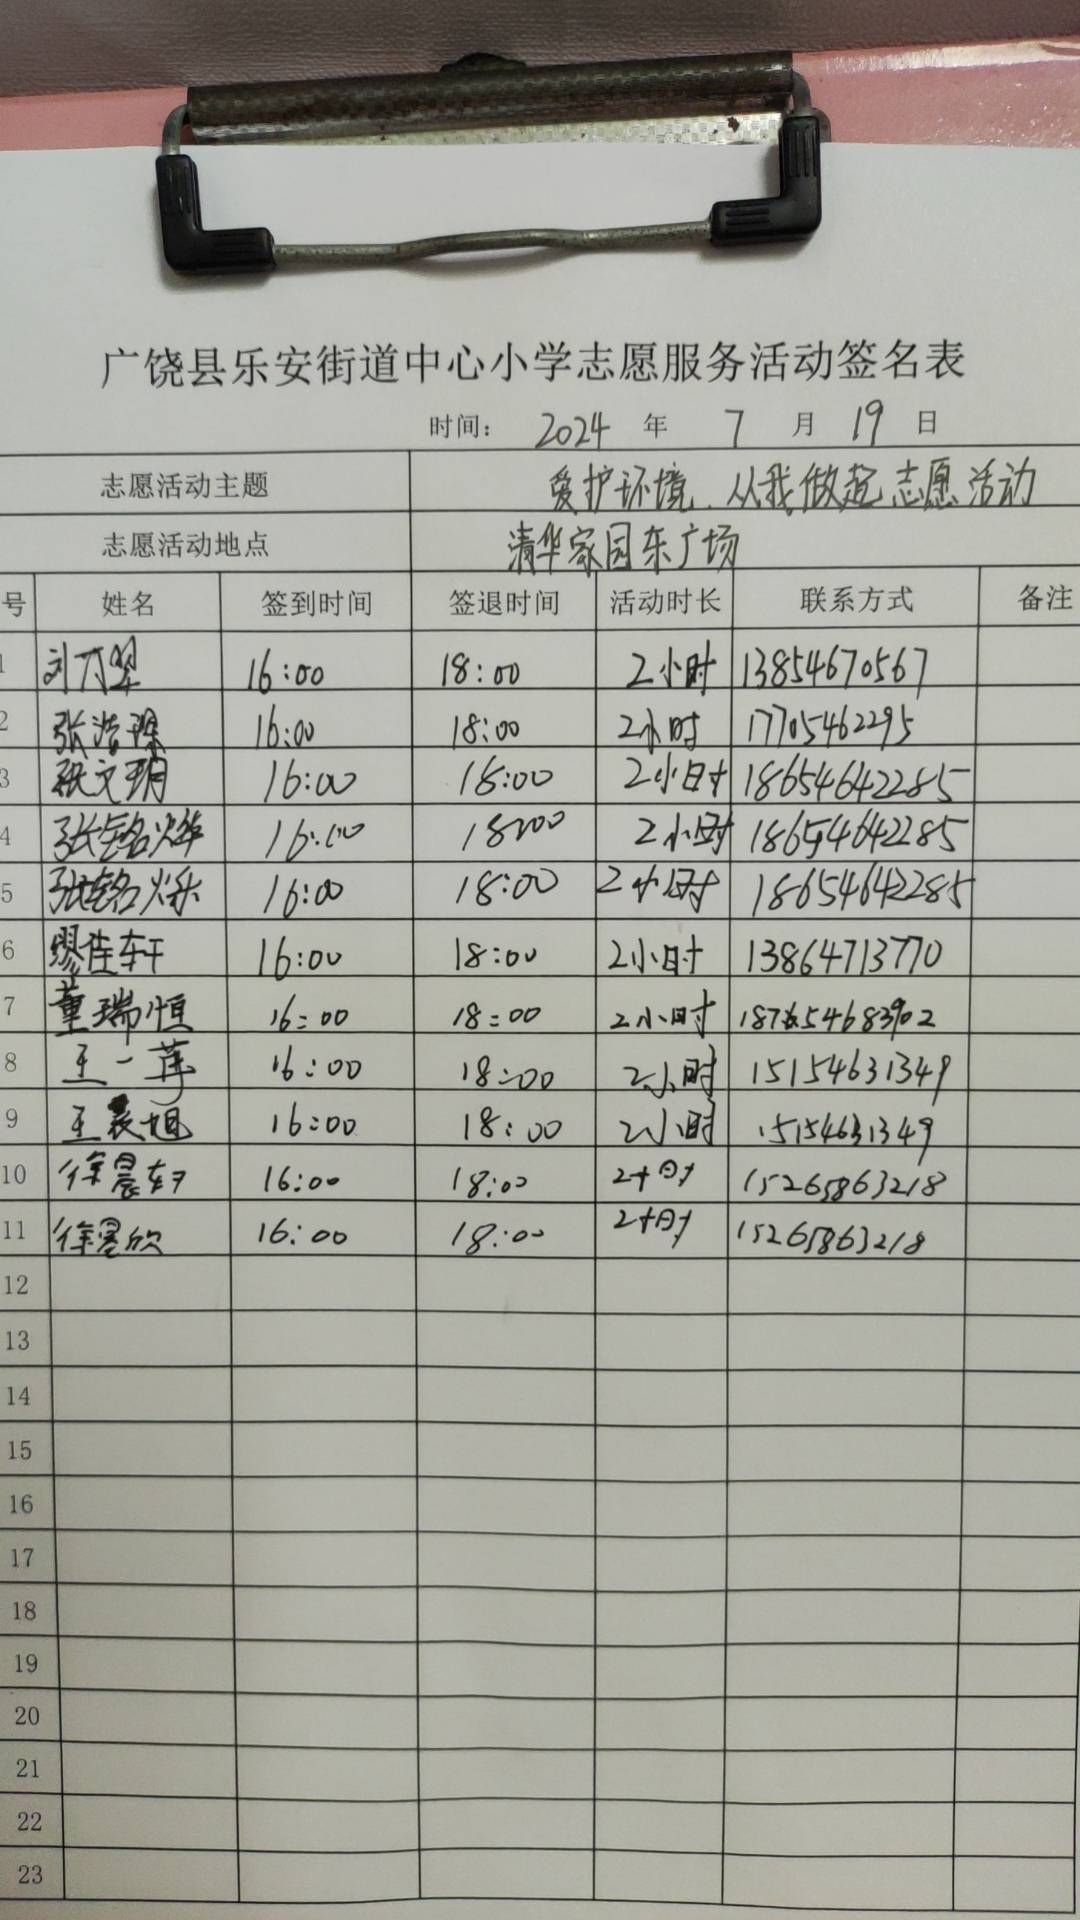 广饶县乐安街道中心小学志愿服务活动签名表
时间： 2024 年 7 月 19 日
志愿活动主题 爱护环境、从我做起志愿活动
志愿活动地点 清华家园东广场
号 姓名 签到时间 签退时间 活动时长 联系方式 备注
1 刘 16:00 18:00 2小时 13854670567
2 张浩琛 16:00 18:00 2小时 17705462295
3 张文玥 16:00 18:00 2小时 18654642285
4 张铭烨 16:00 18:00 2小时 18654642285
5 张铭烁 16:00 18:00 2小时 18654642285
6 缪佳轩 16:00 18:00 2小时 13864713770
7 董瑞恒 16:00 18:00 2小时
8 王一 16:00 18:00 2小时 15154631349
9 王晨旭 16:00 18:00 2小时 15154631349
10 徐晨轩 16:00 18:00 2小时 15265863218
11 徐昱欣 16:00 18:00 2小时 15265863218
12
13
14
15
16
17
18
19
20
21
22
23